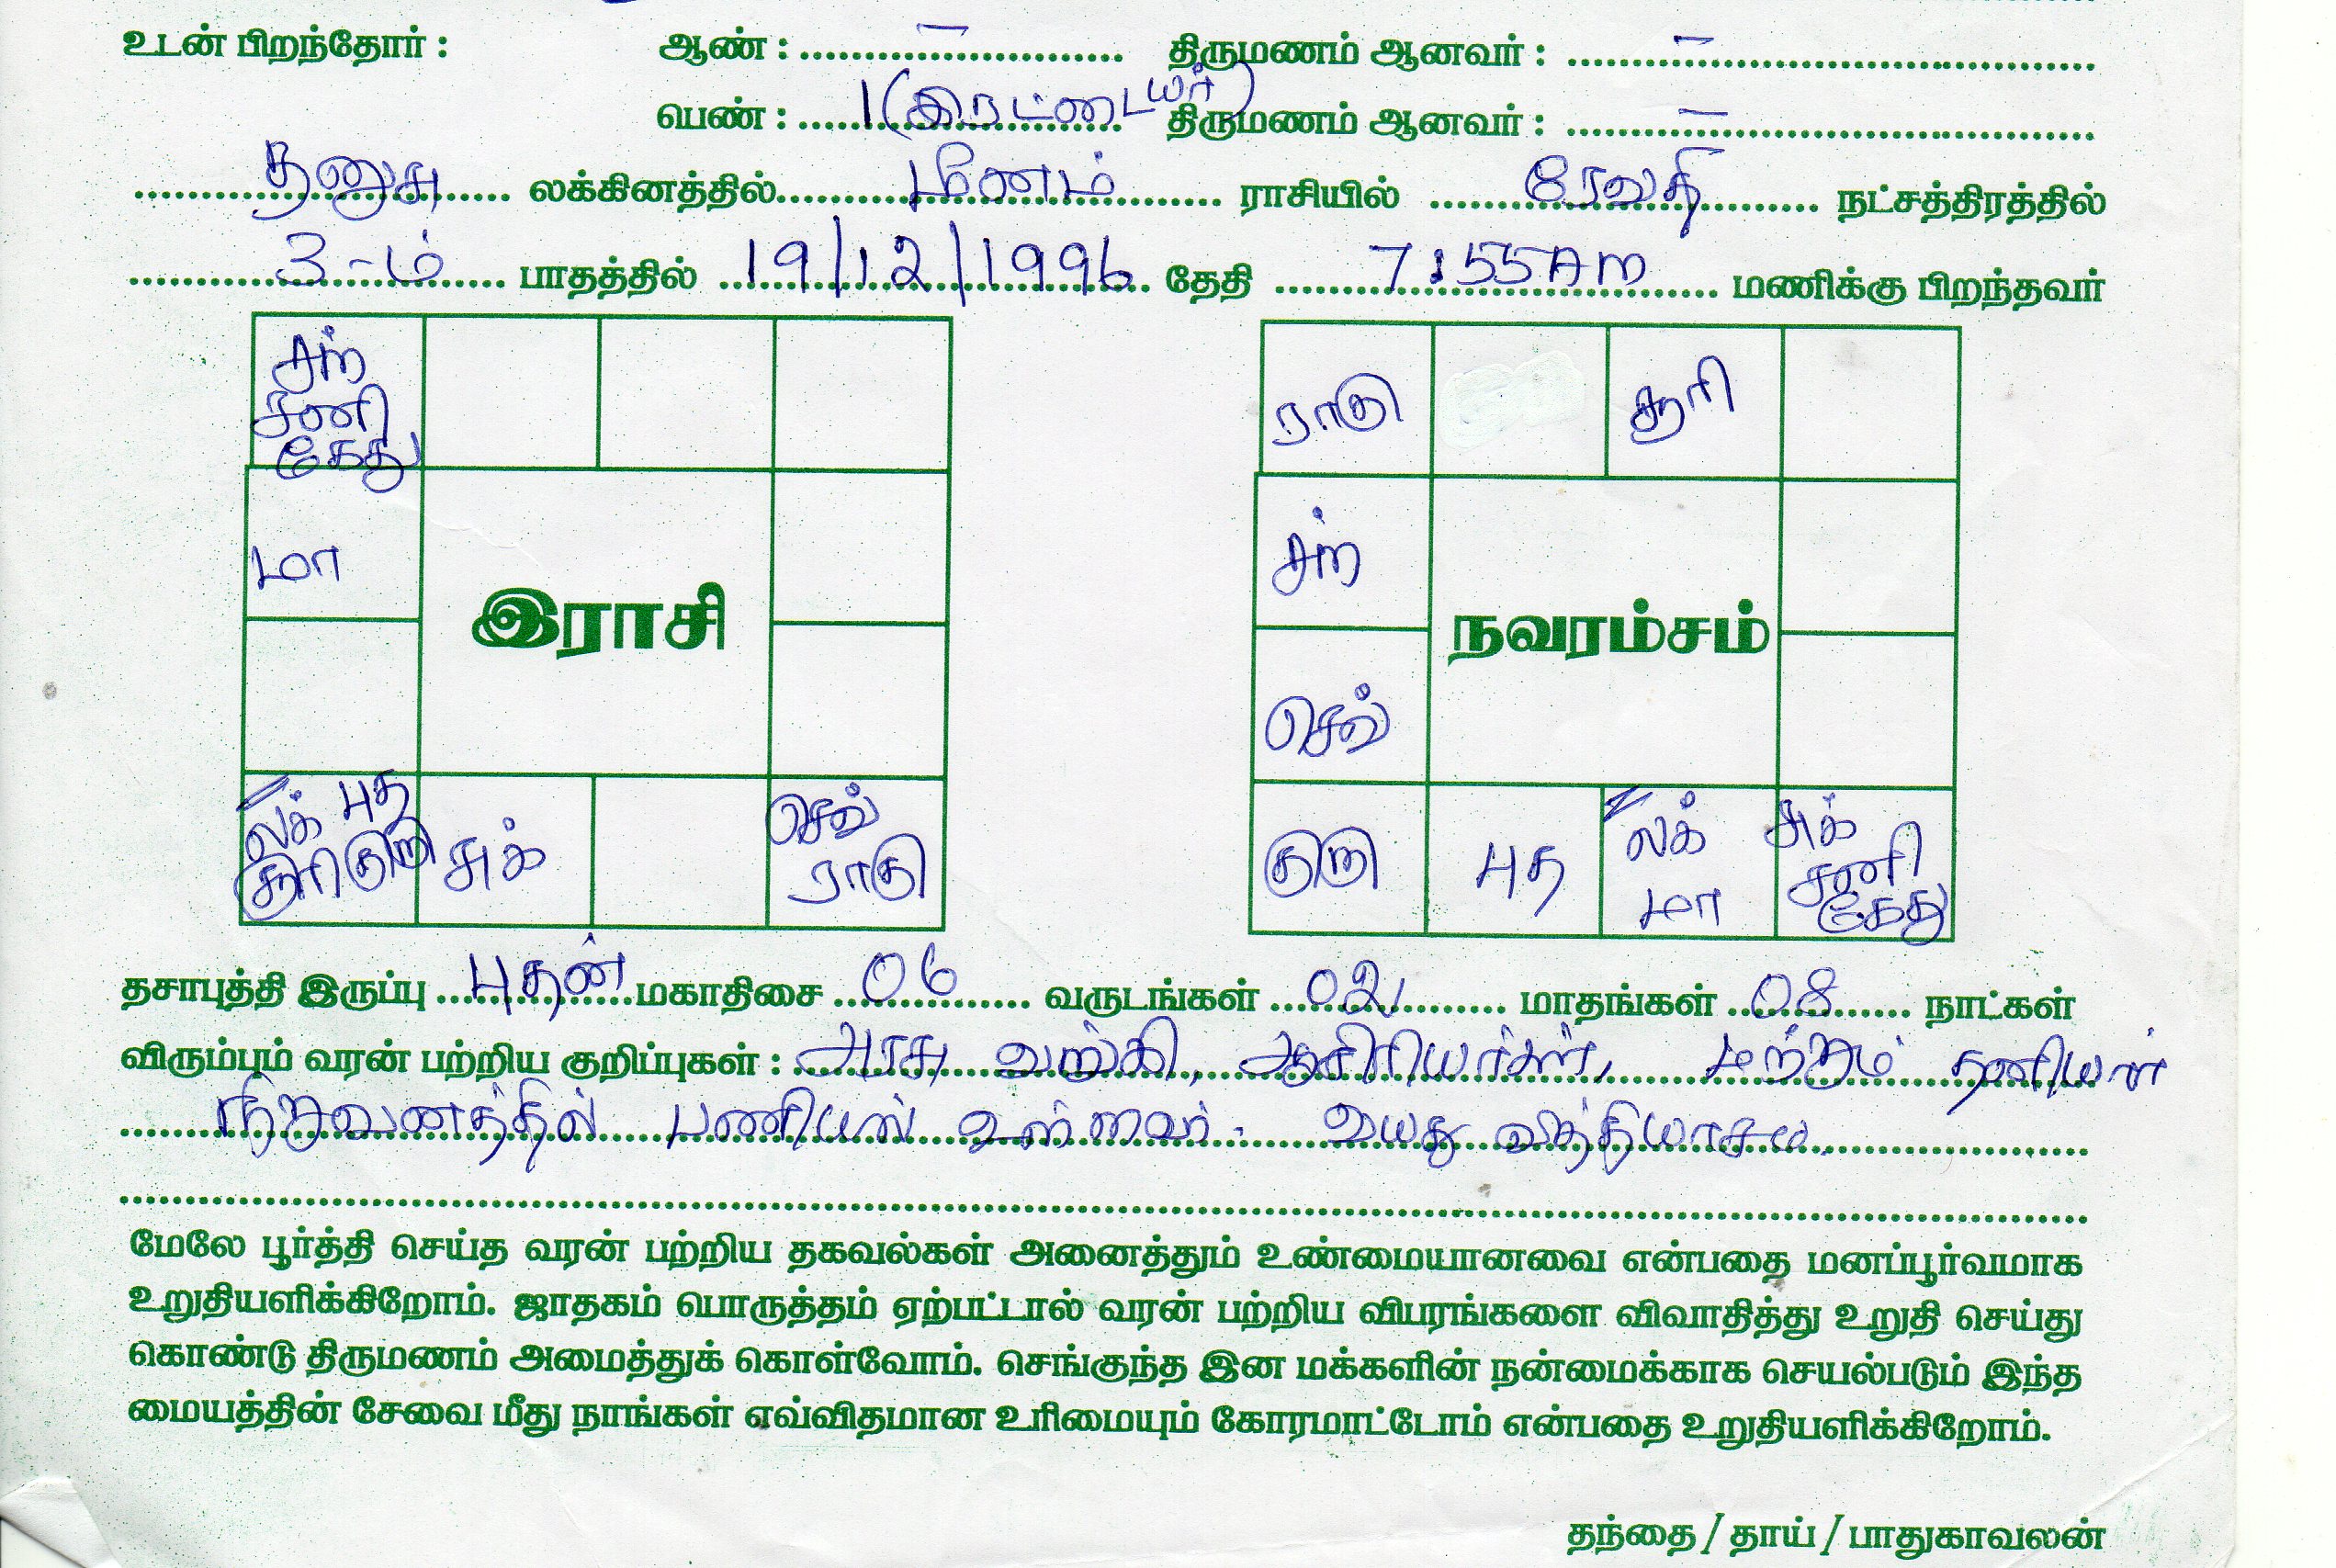 உடன் பிறந்தோர் : ஆண் : ..... – ..... திருமணம் ஆனவர் : ..... – .....
பெண் : ..... 1 (இரட்டையர்) திருமணம் ஆனவர் : ..... – .....
தனுசு லக்கினத்தில் மீனம் ராசியில் ரேவதி நட்சத்திரத்தில்
3-ம் பாதத்தில் 19/12/1996 தேதி 7:55 Am மணிக்கு பிறந்தவர்
சந்
சனி
கேது
மா
இராசி
லக் புத
சூரி குரு
சுக்
செவ்
ராகு
ராகு
சூரி
சந்
நவரம்சம்
செவ்
குரு
புத
லக்
மா
சுக்
சனி
கேது
தசாபுத்தி இருப்பு புதன் மகாதிசை 06 வருடங்கள் 02 மாதங்கள் 08 நாட்கள்
விரும்பும் வரன் பற்றிய குறிப்புகள் : அரசு வங்கி, ஆசிரியர்கள், மற்றும் தனியார்
நிறுவனத்தில் பணியில் உள்ளவர். வயது வித்தியாசம்
மேலே பூர்த்தி செய்த வரன் பற்றிய தகவல்கள் அனைத்தும் உண்மையானவை என்பதை மனப்பூர்வமாக
உறுதியளிக்கிறோம். ஜாதகம் பொருத்தம் ஏற்பட்டால் வரன் பற்றிய விபரங்களை விவாதித்து உறுதி செய்து
கொண்டு திருமணம் அமைத்துக் கொள்வோம். செங்குந்த இன மக்களின் நன்மைக்காக செயல்படும் இந்த
மையத்தின் சேவை மீது நாங்கள் எவ்விதமான உரிமையும் கோரமாட்டோம் என்பதை உறுதியளிக்கிறோம்.
தந்தை / தாய் / பாதுகாவலன்